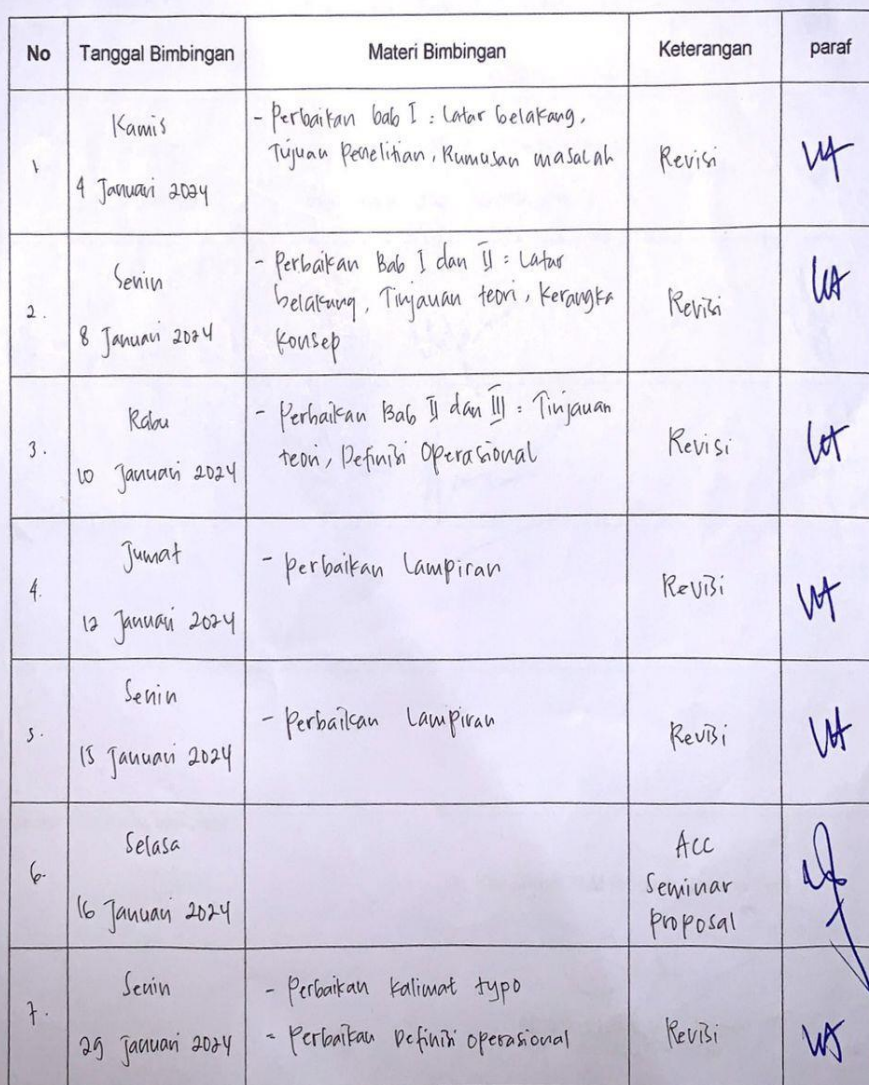 No Tanggal Bimbingan Materi Bimbingan Keterangan paraf
1 Kamis
4 Januari 2024
- Perbaikan bab I : Latar belakang,
Tujuan Penelitian, Rumusan masalah
Revisi
2. Senin
8 Januari 2024
- Perbaikan Bab I dan II : Latar
belakang, Tinjauan teori, Kerangka
Konsep
Revisi
3. Rabu
10 Januari 2024
- Perbaikan Bab II dan III : Tinjauan
teori, Definisi Operasional
Revisi
4. Jumat
12 Januari 2024
- Perbaikan Lampiran
Revisi
5. Senin
15 Januari 2024
- Perbaikan Lampiran
Revisi
6. Selasa
16 Januari 2024
Acc
Seminar
Proposal
7. Senin
29 Januari 2024
- Perbaikan Kalimat typo
- Perbaikan Definisi operasional
Revisi